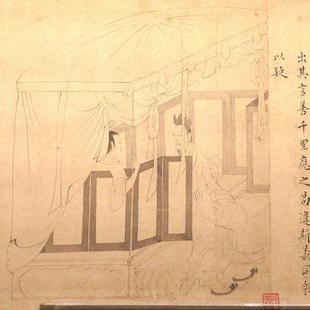 出其言善千里應之苟違斯義同衾
以疑